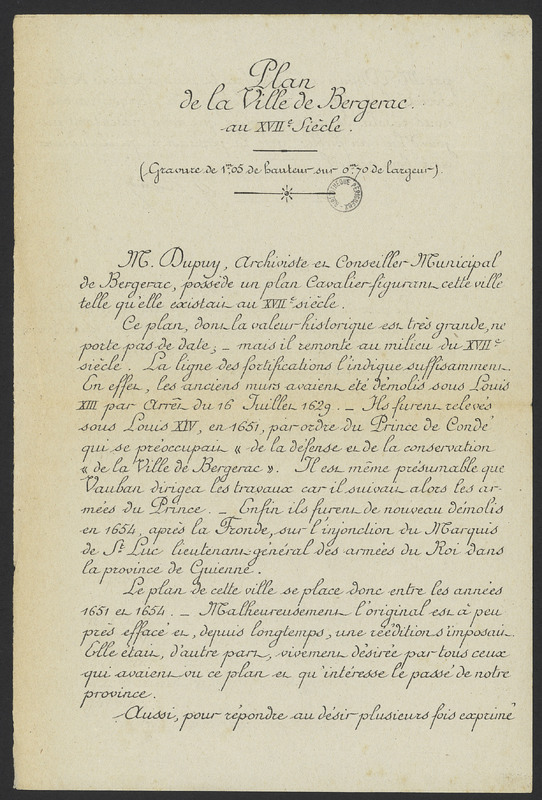 Plan
de la Ville de Bergerac.
au XVIIe Siècle.
(Gravure de 1m05 de hauteur sur 0m70 de largeur).
M. Dupuy, Archiviste et Conseiller Municipal
de Bergerac, possède un plan Cavalier figurant cette ville
telle qu'elle existait au XVIIe siècle.
Ce plan, dont la valeur historique est très grande, ne
porte pas de date; _ mais il remonte au milieu du XVIIe
siècle. La ligne des fortifications l'indique suffisamment.
En effet, les anciens murs avaient été démolis sous Louis
XIII par Arrêt du 16 Juillet 1629. _ Ils furent relevés
sous Louis XIV, en 1651, par ordre du Prince de Condé
qui se préoccupait « de la défense et de la conservation
« de la Ville de Bergerac ». Il est même présumable que
Vauban dirigea les travaux car il suivait alors les ar-
mées du Prince. _ Enfin ils furent de nouveau démolis
en 1654, après la Fronde, sur l'injonction du Marquis
de St Luc lieutenant-général des armées du Roi dans
la province de Guienne.
Le plan de cette ville se place donc entre les années
1651 et 1654. _ Malheureusement l'original est à peu
près effacé et, depuis longtemps, une réédition s'imposait.
Elle était, d'autre part, vivement désirée par tous ceux
qui avaient vu ce plan et qu'intéresse le passé de notre
province.
Aussi, pour répondre au désir plusieurs fois exprimé